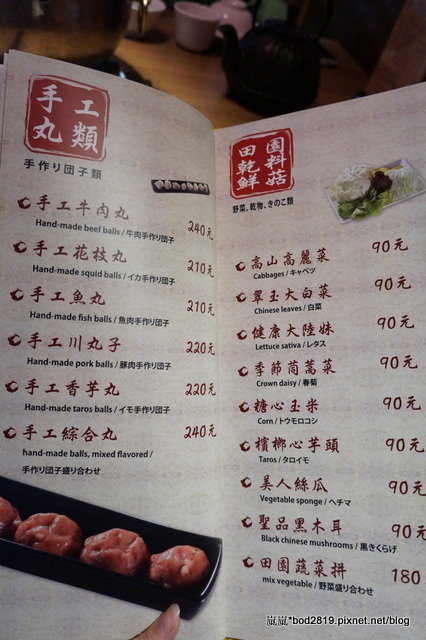 手工
丸類
手作り団子類
手工牛肉丸 240元
Hand-made beef balls / 牛肉手作り団子
手工花枝丸 210元
Hand-made squid balls / イカ手作り団子
手工魚丸 210元
Hand-made fish balls / 魚肉手作り団子
手工川丸子 220元
Hand-made pork balls / 豚肉手作り団子
手工香芋丸 220元
Hand-made taros balls / イモ手作り団子
手工綜合丸 240元
hand-made balls, mixed flavored /
手作り団子盛り合わせ
田園
乾料
鮮菇
野菜、乾物、きのこ類
高山高麗菜 90元
Cabbages / キャベツ
翠玉大白菜 90元
Chinese leaves / 白菜
健康大陸妹 90元
Lettuce sativa / レタス
季節茼蒿菜 90元
Crown daisy / 春菊
糖心玉米 90元
Corn / トウモロコシ
檳榔心芋頭 90元
Taros / タロイモ
美人絲瓜 90元
Vegetable sponge / ヘチマ
聖品黑木耳 90元
Black chinese mushrooms / 黒きくらげ
田園蔬菜拼 180
mix vegetable / 野菜盛り合わせ
嵐嵐*bod2819.pixnet.net/blog